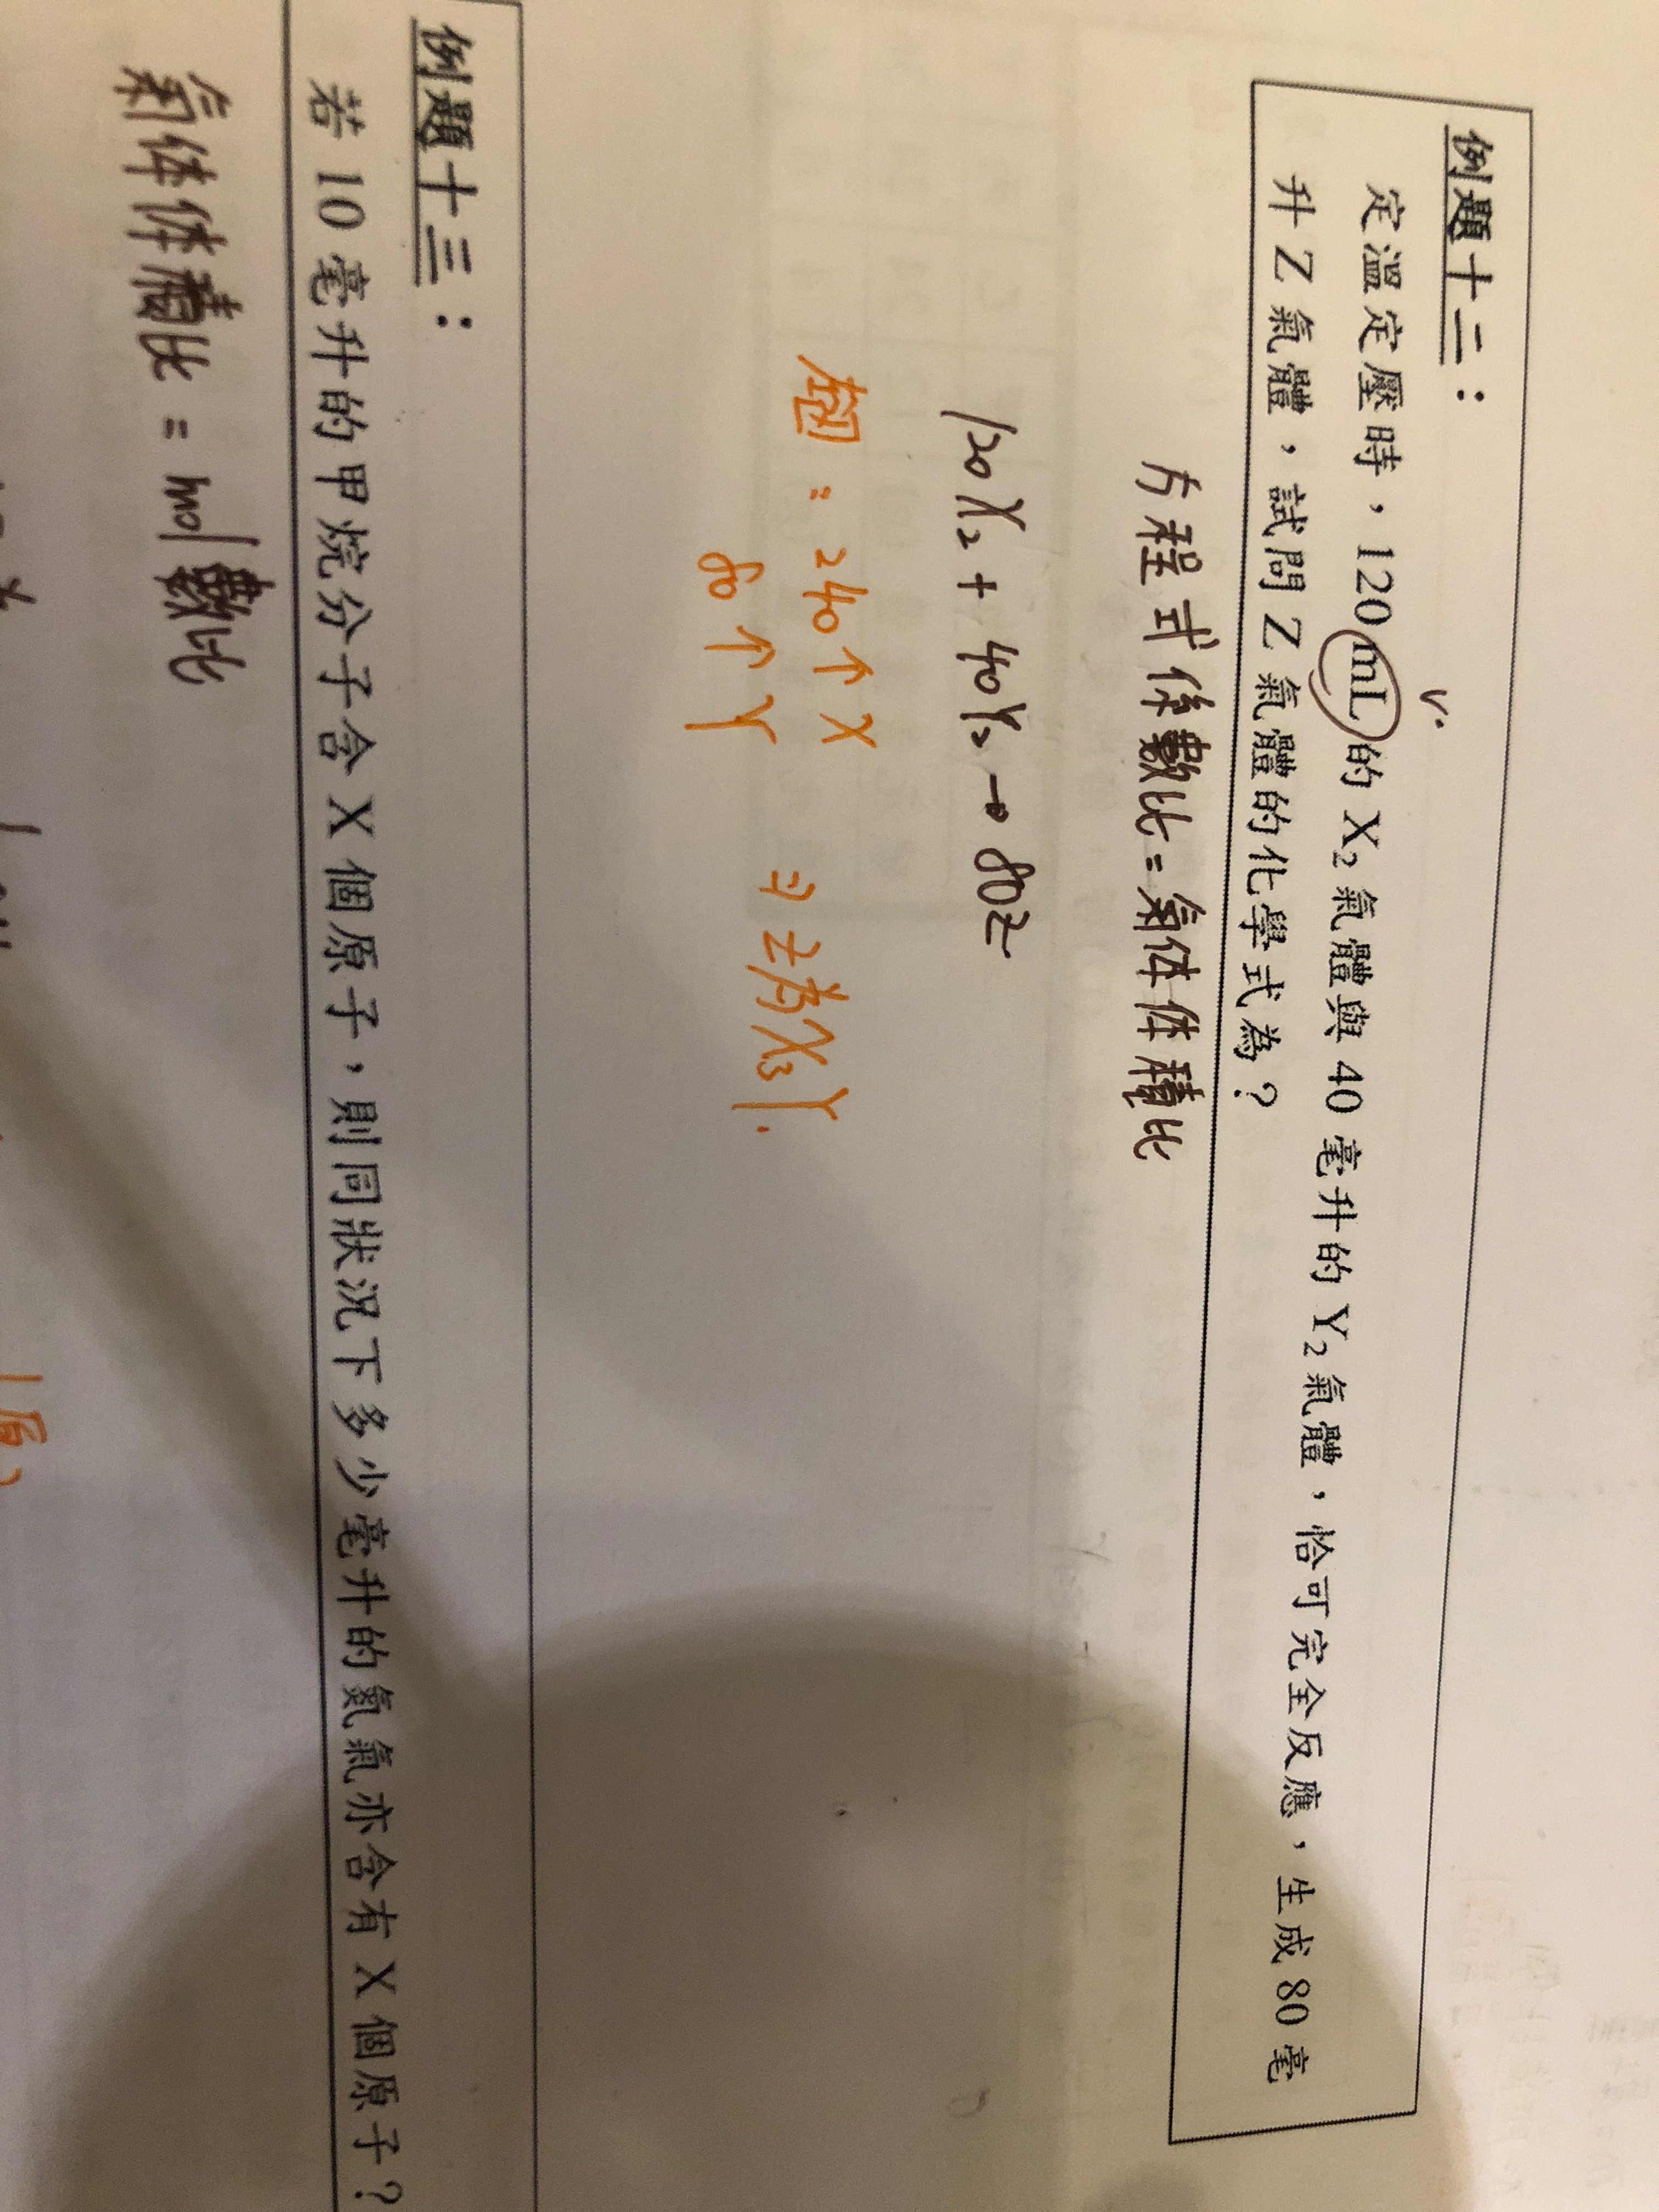 例題十二：
定溫定壓時，120 mL 的 X₂ 氣體與 40 毫升的 Y₂ 氣體，恰可完全反應，生成 80 毫
升 Z 氣體，試問 Z 氣體的化學式為？
V.
方程式係數比 = 氣体体積比
120X₂ + 40Y₂ → 80Z
左包 : 240个X
80个Y
⇒ Z為X₃Y.
例題十三：
若 10 毫升的甲烷分子含 X 個原子，則同狀況下多少毫升的氮氣亦含有 X 個原子？
氣体体積比 = mol 數比